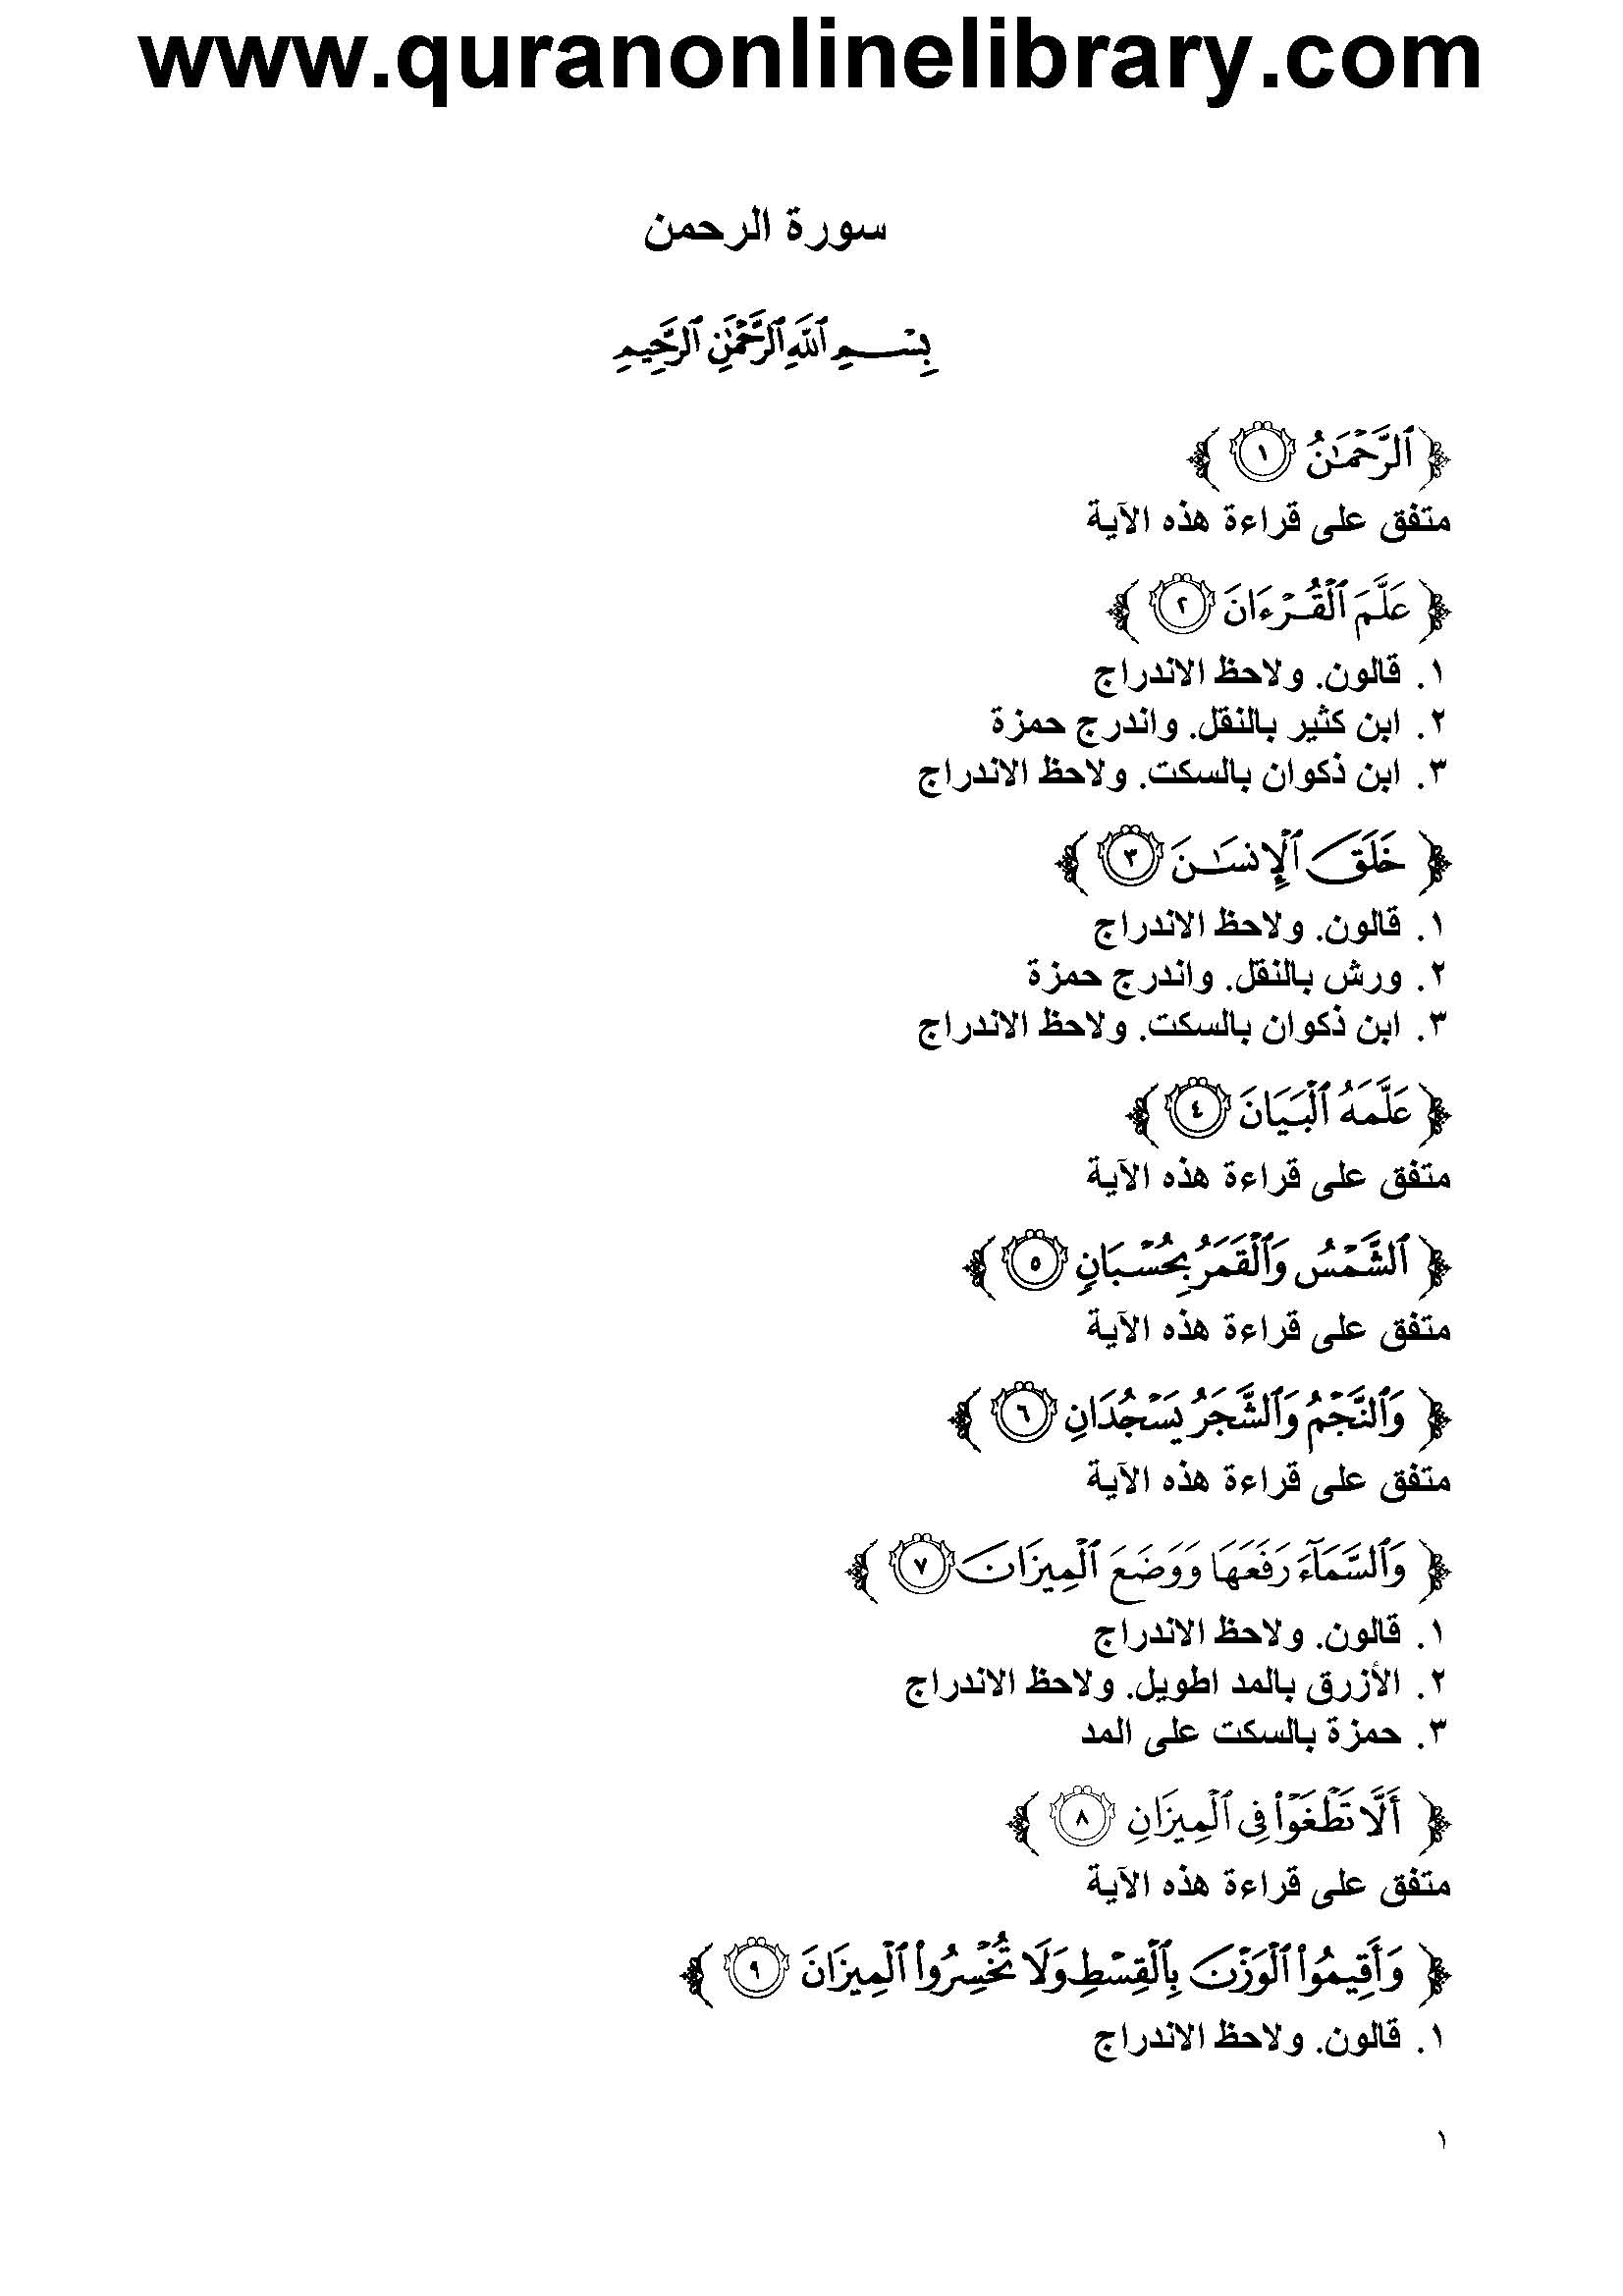 www.quranonlinelibrary.com
سورة الرحمن
بِسْمِ ٱللَّهِ ٱلرَّحْمَٰنِ ٱلرَّحِيمِ
﴿ ٱلرَّحْمَٰنُ ١ ﴾
متفق على قراءة هذه الآية
﴿ عَلَّمَ ٱلْقُرْءَانَ ٢ ﴾
١. قالون. ولاحظ الاندراج
٢. ابن كثير بالنقل. واندرج حمزة
٣. ابن ذكوان بالسكت. ولاحظ الاندراج
﴿ خَلَقَ ٱلْإِنسَٰنَ ٣ ﴾
١. قالون. ولاحظ الاندراج
٢. ورش بالنقل. واندرج حمزة
٣. ابن ذكوان بالسكت. ولاحظ الاندراج
﴿ عَلَّمَهُ ٱلْبَيَانَ ٤ ﴾
متفق على قراءة هذه الآية
﴿ ٱلشَّمْسُ وَٱلْقَمَرُ بِحُسْبَانٍ ٥ ﴾
متفق على قراءة هذه الآية
﴿ وَٱلنَّجْمُ وَٱلشَّجَرُ يَسْجُدَانِ ٦ ﴾
متفق على قراءة هذه الآية
﴿ وَٱلسَّمَآءَ رَفَعَهَا وَوَضَعَ ٱلْمِيزَانَ ٧ ﴾
١. قالون. ولاحظ الاندراج
٢. الأزرق بالمد اطويل. ولاحظ الاندراج
٣. حمزة بالسكت على المد
﴿ أَلَّا تَطْغَوْا۟ فِى ٱلْمِيزَانِ ٨ ﴾
متفق على قراءة هذه الآية
﴿ وَأَقِيمُوا۟ ٱلْوَزْنَ بِٱلْقِسْطِ وَلَا تُخْسِرُوا۟ ٱلْمِيزَانَ ٩ ﴾
١. قالون. ولاحظ الاندراج
١